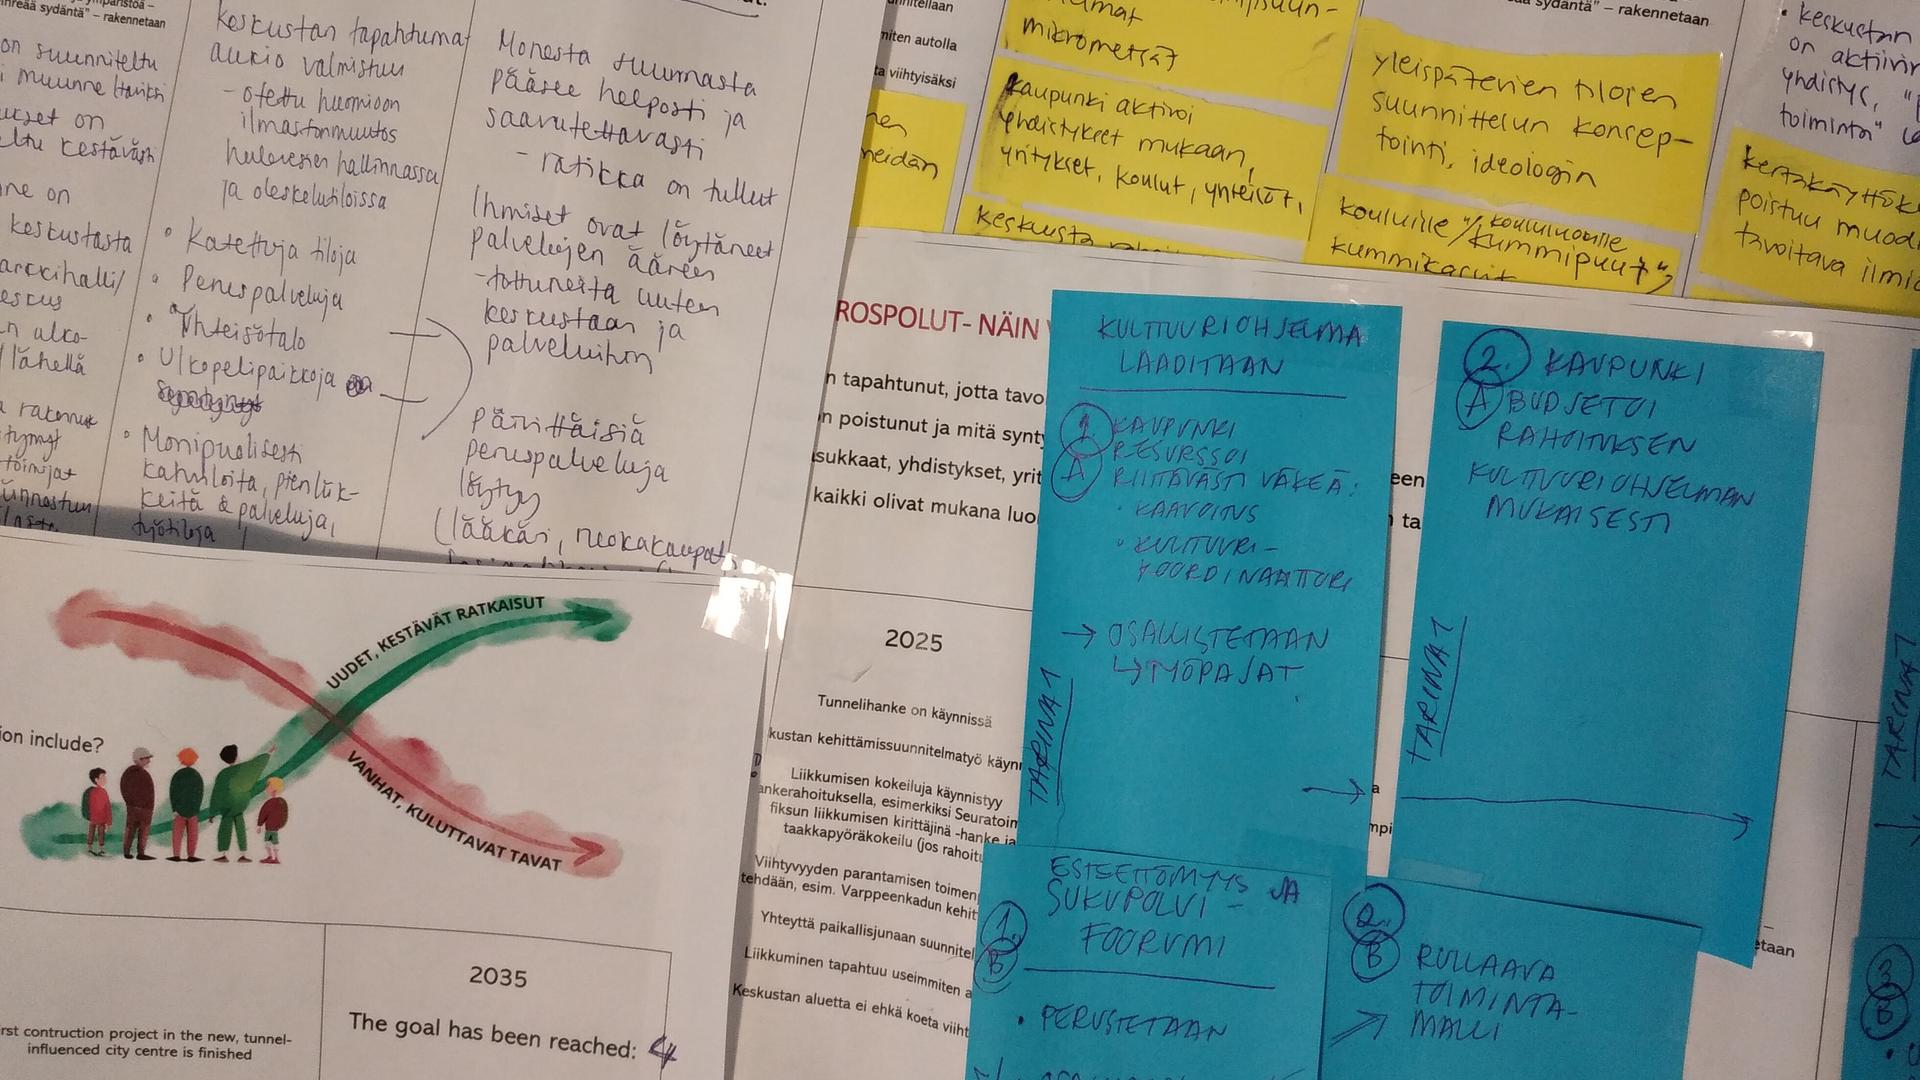 nreää sydäntä" – rakennetaan
on suunniteltu
keskustasta
lähellä
keskustan tapahtuma
aukio valmistuu
- otettu huomioon
ilmastonmuutos
hulevesien hallinnassa
ja oleskelutiloissa
• Katettuja tiloja
• Peruspalveluja
• Yhteisötalo
• Ulkopelipaikkoja
• Monipuolisesti
kahviloita, pienliik-
keitä & palveluja,
työtiloja
Monesta suunnasta
pääsee helposti ja
saavutettavasti
- ratikka on tullut
Ihmiset ovat löytäneet
palvelujen ääreen
- tottuneita uuteen
keskustaan ja
palveluihin
päivittäisiä
peruspalveluja
löytyy
(lääkäri, ruokakaupat,
unnitellaan
miten autolla
ta viihtyisäksi
meidän
mikrometsät
kaupunki aktivoi
yhdistykset mukaan,
yritykset, koulut, yhteisöt,
keskusta
sydäntä" – rakennetaan
yleispätevien tilojen
suunnittelun konsep-
tointi, ideologin
kouluille "/ koululuokille
kummipuut",
• keskustan
on aktiivin
yhdistys,
toiminta"
kertakäyttök
poistuu muod
tavoitava ilmi
ROSPOLUT- NÄIN
n tapahtunut, jotta tavo
n poistunut ja mitä synty
asukkaat, yhdistykset, yrit
kaikki olivat mukana luo
een
ta
KULTTUURIOHJELMA
LAADITAAN
1 KAUPUNKI
A RESURSSOI
RIITTÄVÄSTI VÄKEÄ:
• KAAVOITUS
• KULTTUURI-
KOORDINAATTORI
→ OSALLISTETAAN
↳ TYÖPAJAT
TARINA 1
2. KAUPUNKI
A BUDJETOI
RAHOITUKSEN
KULTTUURIOHJELMAN
MUKAISESTI
TARINA 1
TARINA 1
UUDET, KESTÄVÄT RATKAISUT
VANHAT, KULUTTAVAT TAVAT
ion include?
2025
Tunnelihanke on käynnissä
kustan kehittämissuunnitelmatyö käynn
Liikkumisen kokeiluja käynnistyy
ankerahoituksella, esimerkiksi Seuratoim
fiksun liikkumisen kirittäjinä -hanke ja
taakkapyöräkokeilu (jos rahoitu
Viihtyvyyden parantamisen toimen
tehdään, esim. Varppeenkadun kehit
Yhteyttä paikallisjunaan suunnitel
Liikkuminen tapahtuu useimmiten a
Keskustan aluetta ei ehkä koeta viiht
1. B
ESTEETTÖMYYS JA
SUKUPOLVI-
FOORUMI
• PERUSTETAAN
2. B
RULLAAVA
TOIMINTA-
MALLI
etaan
3 B
2035
The goal has been reached: 4
rst contruction project in the new, tunnel-
influenced city centre is finished